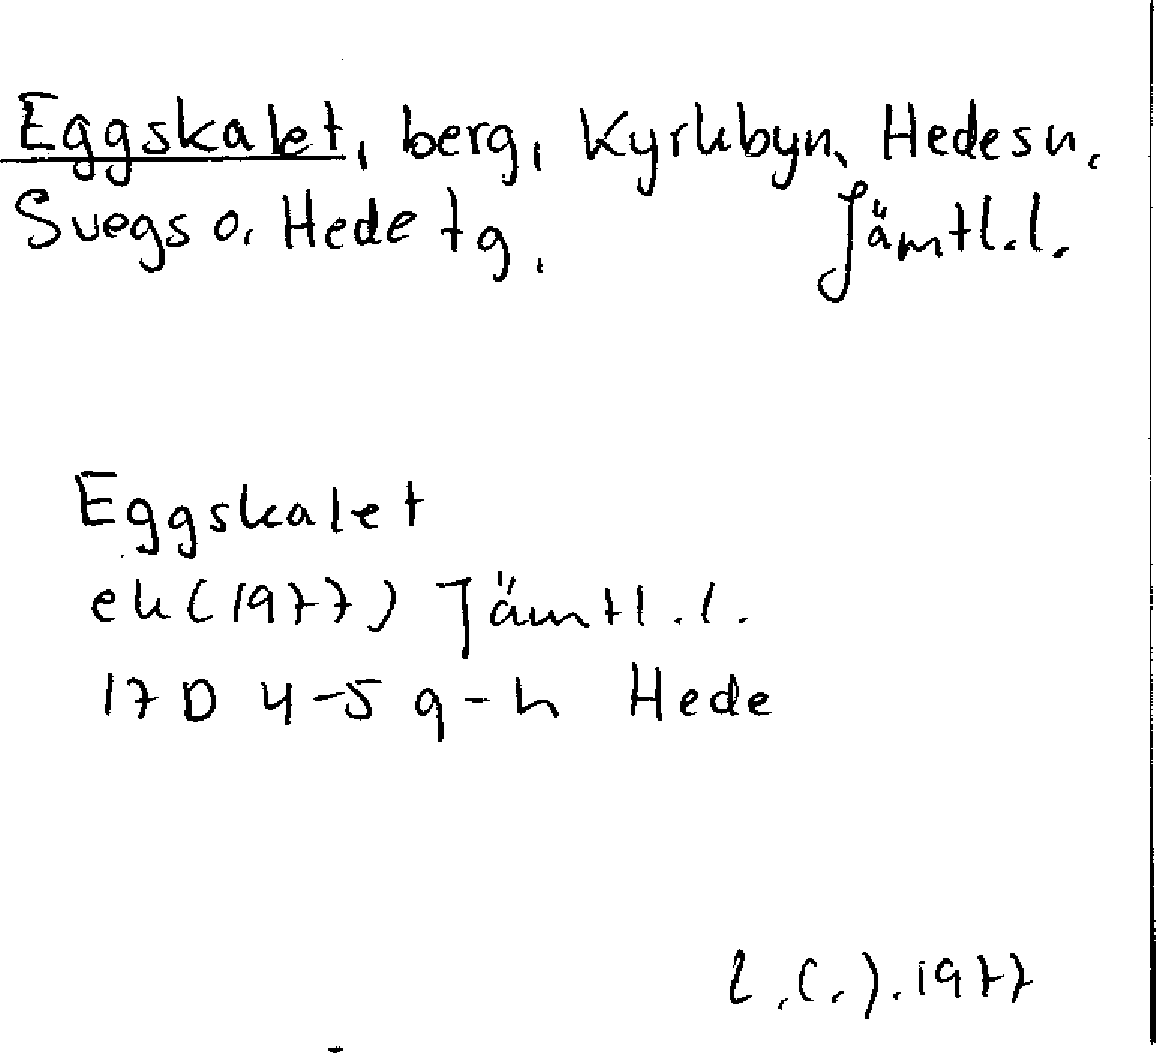 Eggskalet, berg, Kyrkbyn, Hede sn,
Svegs o. Hede tg, Jämtl.l.
Eggskalet
ek (1977) Jämtl.l.
17 D 4-5 g-h Hede
1977